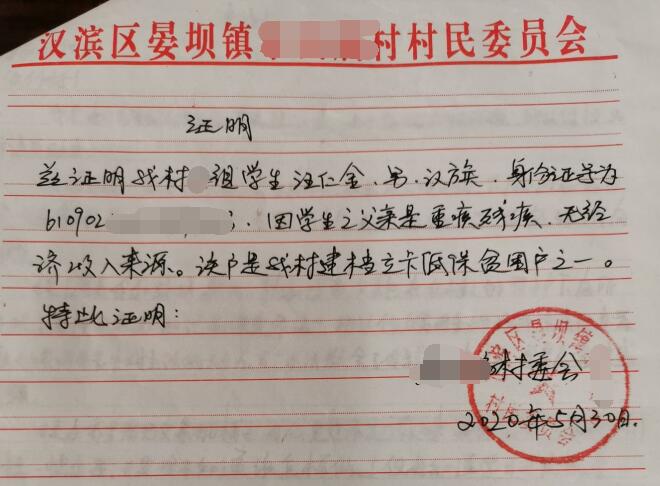 汉滨区晏坝镇村村民委员会
证明
兹证明我村组学生汪仁金、男、汉族、身份证号为
610902、因学生之父亲是重疾残疾、无经
济收入来源。该户是我村建档立卡低保贫困户之一。
特此证明：
村委会
2020年5月30日.